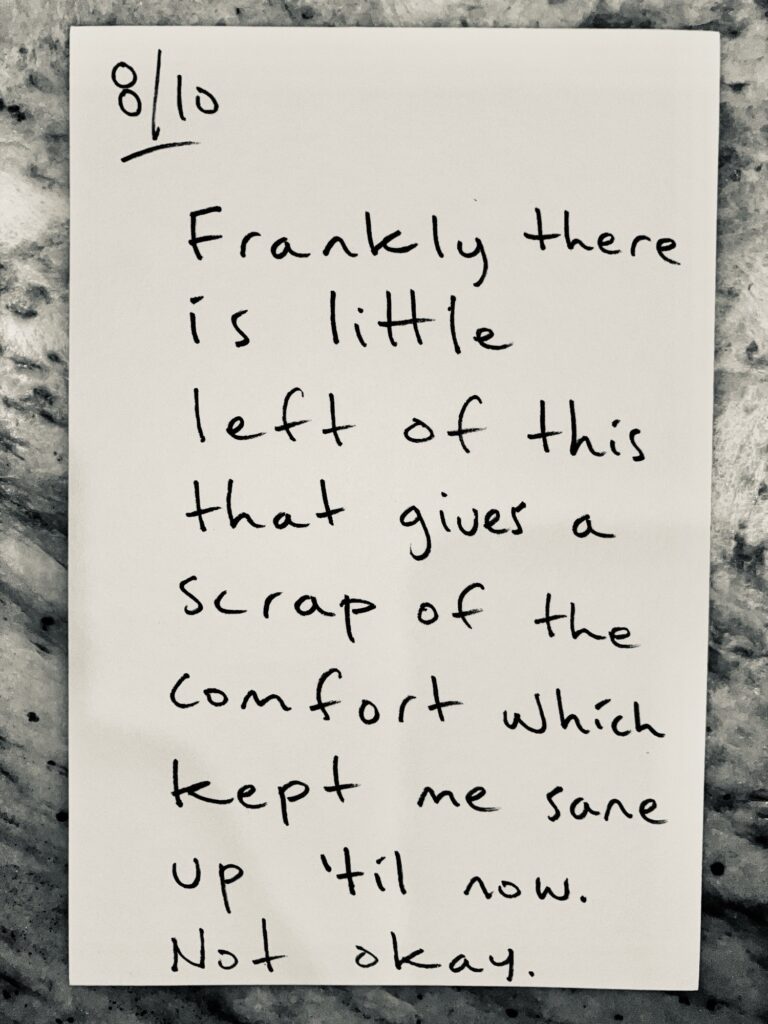 8/10
Frankly there
is little
left of this
that gives a
scrap of the
comfort which
kept me sane
up 'til now.
Not okay.